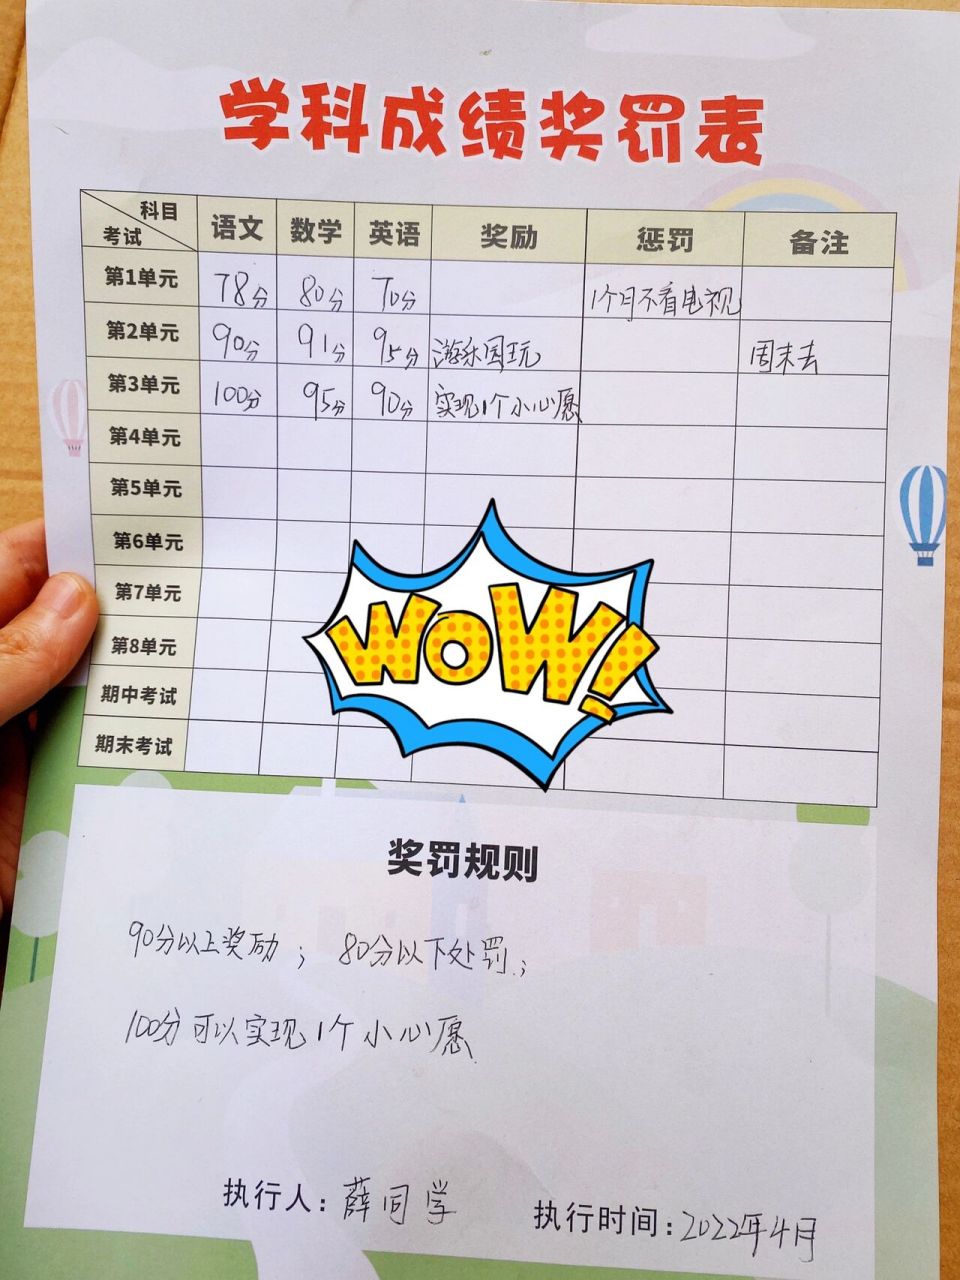 学科成绩奖罚表
科目
考试 语文 数学 英语 奖励 惩罚 备注
第1单元 78分 80分 70分 1个月不看电视
第2单元 90分 91分 95分 游乐园玩 周末去
第3单元 100分 95分 90分 实现1个小心愿
第4单元
第5单元
第6单元
第7单元
第8单元
期中考试
期末考试
WOW!
奖罚规则
90分以上奖励； 80分以下处罚；
100分可以实现1个小心愿
执行人：薛同学 执行时间：2022年4月